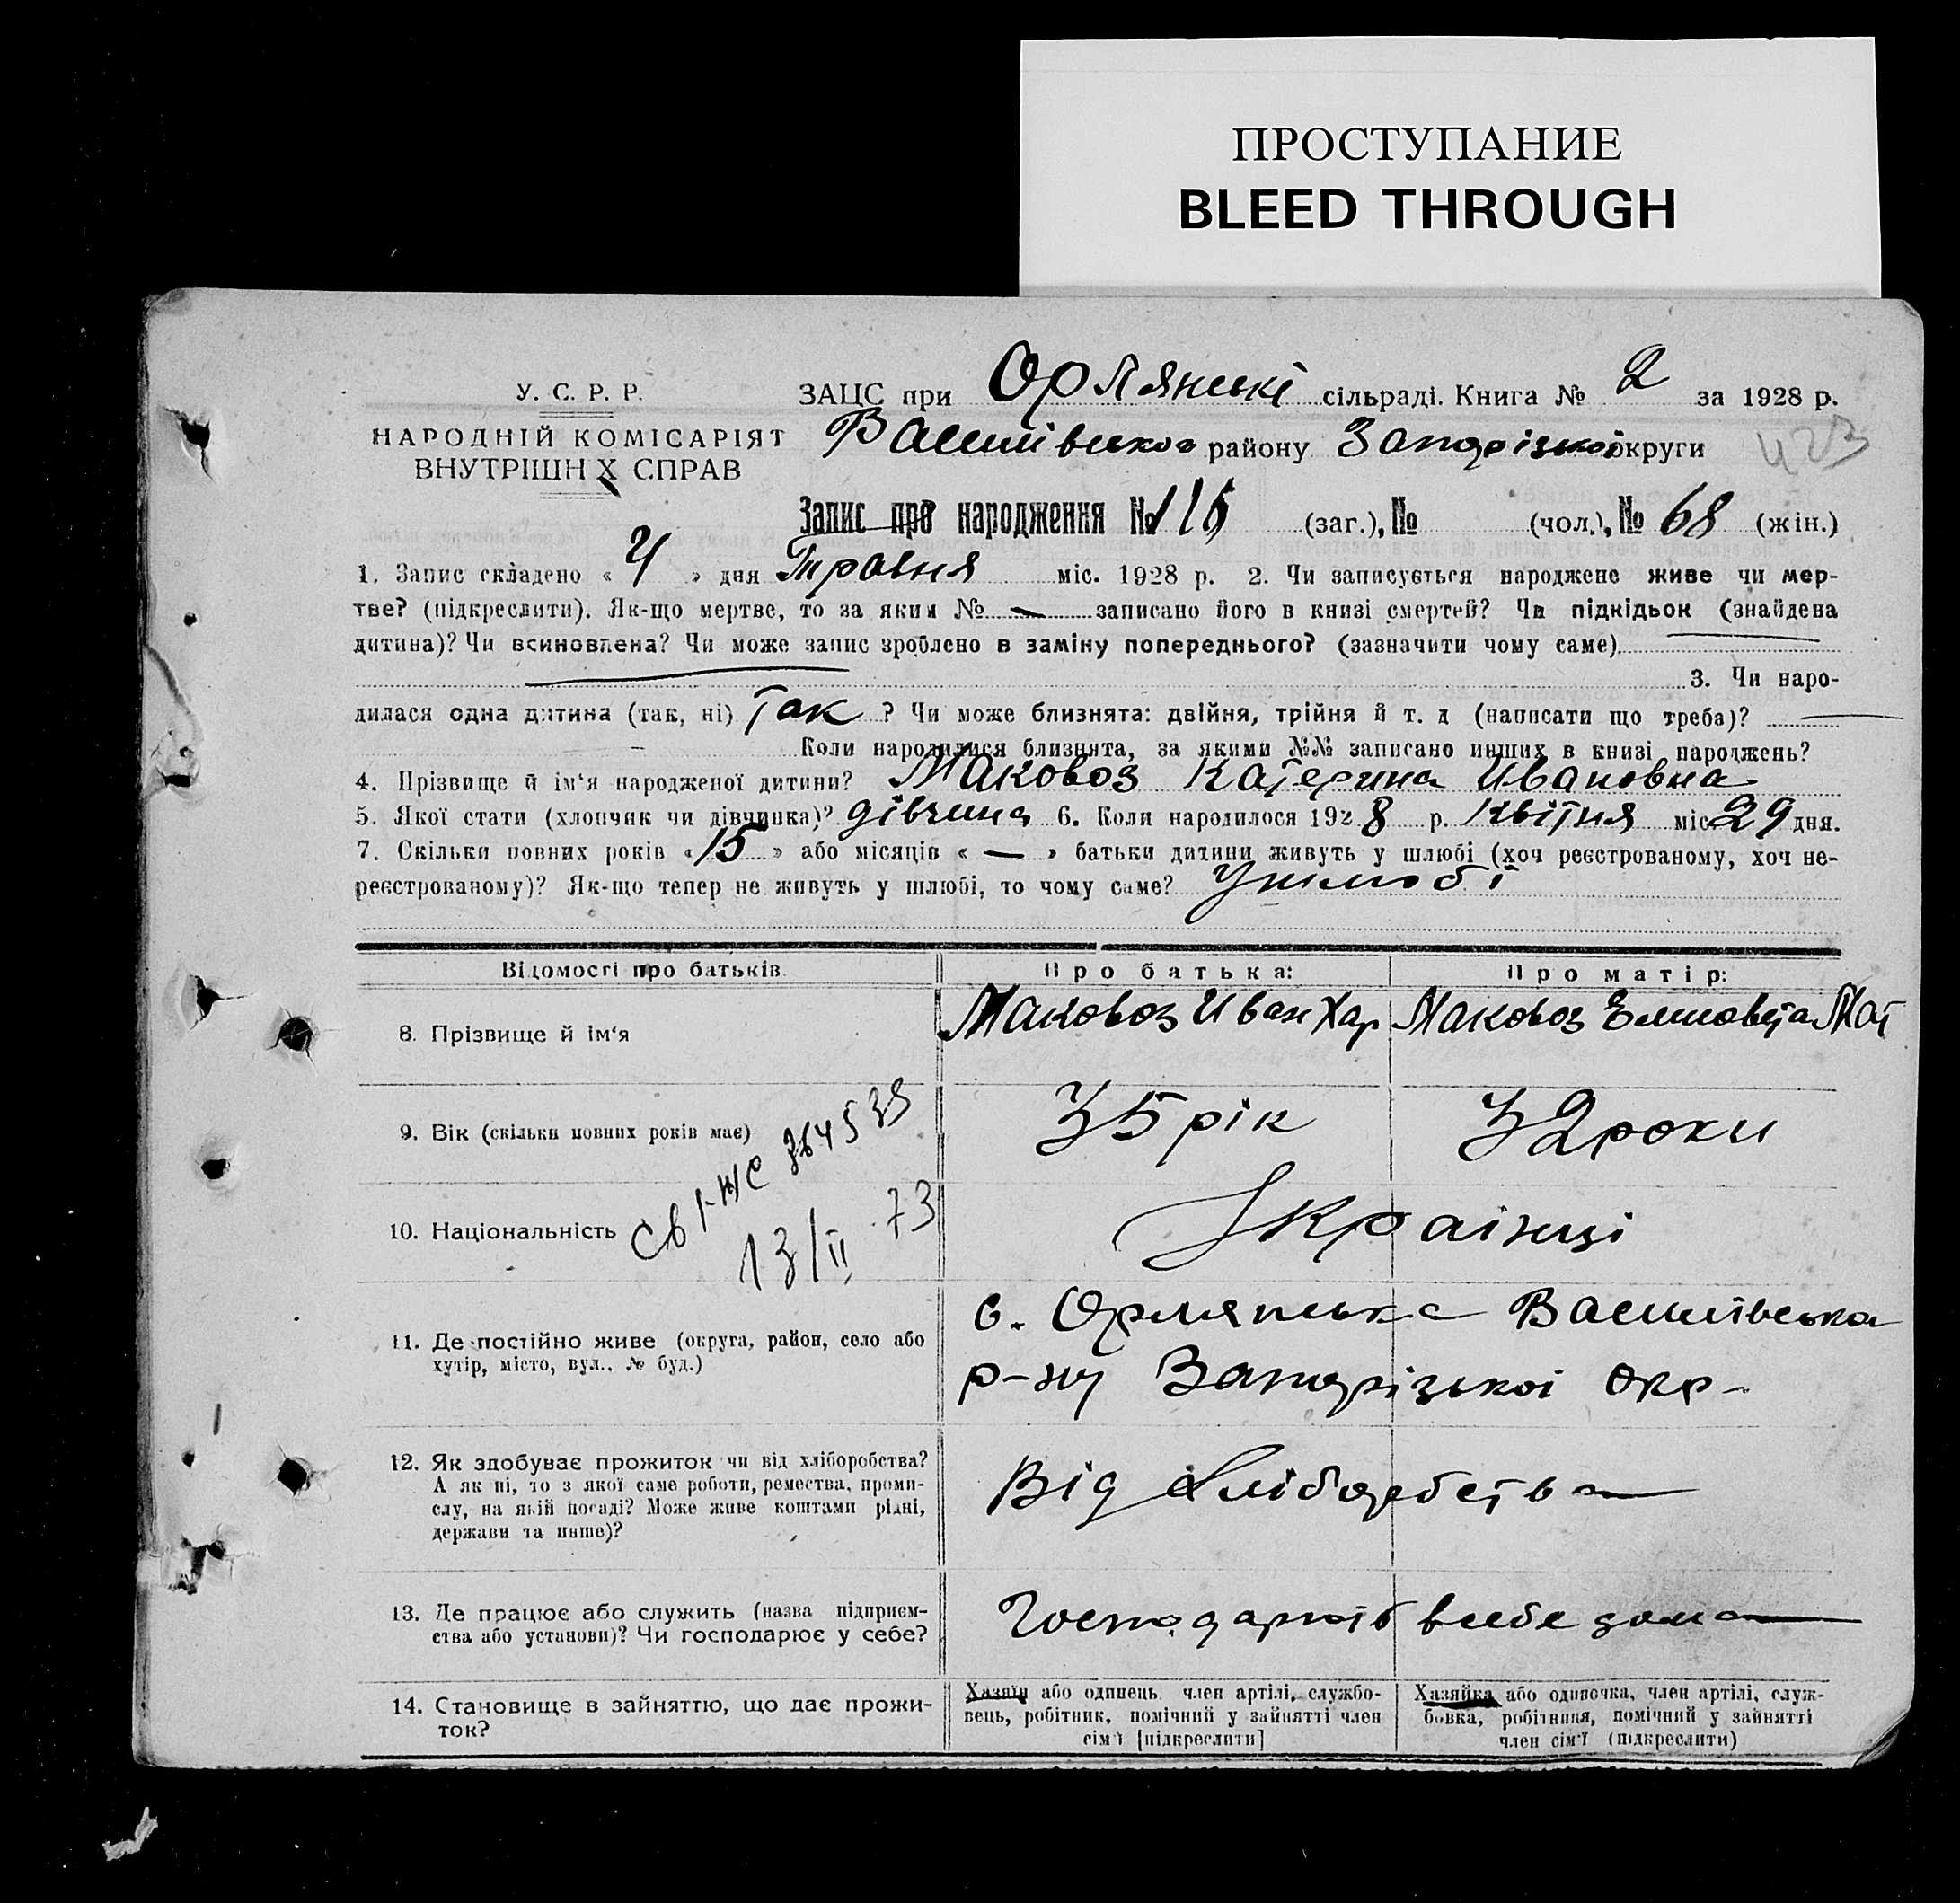 ПРОСТУПАНИЕ
BLEED THROUGH
У. С. Р. Р.
НАРОДНІЙ КОМІСАРІЯТ
ВНУТРІШН Х СПРАВ
ЗАЦС при Орлянські сільраді. Книга № 2 за 1928 р.
Василівського району Запорізької округи
423
Запис про народження № 115 (заг.), № (чол.), № 68 (жін.)
1. Запис складено « 4 » дня Травня міс. 1928 р. 2. Чи записується народжене живе чи мер-
тве? (підкреслити). Як-що мертве, то за яким № — записано його в книзі смертей? Чи підкідьок (знайдена
дитина)? Чи всиновлена? Чи може запис зроблено в заміну попереднього? (зазначити чому саме)
3. Чи наро-
дилася одна дитина (так, ні) Так ? Чи може близнята: двійня, трійня й т. д (написати що треба)? —
Коли народилися близнята, за якими №№ записано инших в книзі народжень?
4. Прізвище й ім'я народженої дитини? Маковоз Катерина Ивановна
5. Якої стати (хлопчик чи дівчинка)? дівчина 6. Коли народилося 1928 р. Квітня міс. 29 дня.
7. Скільки повних років « 15 » або місяців « — » батьки дитини живуть у шлюбі (хоч реєстрованому, хоч не-
реєстрованому)? Як-що тепер не живуть у шлюбі, то чому саме? У шлюбі
Відомості про батьків
Про батька:
Про матір:
8. Прізвище й ім'я
Маковоз Иван Хар
Маковоз Елисовета Мат
9. Вік (скільки повних років має)
35 рік
32 роки
10. Національність
Українці
13/II 73
11. Де постійно живе (округа, район, село або
хутір, місто, вул., № буд.)
с. Орлянська Василівська
р-ну Запорізької окр-
12. Як здобуває прожиток чи від хліборобства?
А як ні, то з якої саме роботи, ремества, проми-
слу, на якій посаді? Може живе коштами рідні,
держави та инше)?
Від хліборобства
13. Де працює або служить (назва підприєм-
ства або установи)? Чи господарює у себе?
в себе дома
14. Становище в зайняттю, що дає прожи-
ток?
Хазяїн або одинець член артілі, службо-
вець, робітник, помічний у зайнятті член
сім'ї [підкреслити]
Хазяйка або одиночка, член артілі, служ-
бовка, робітниця, помічний у зайнятті
член сім'ї (підкреслити)